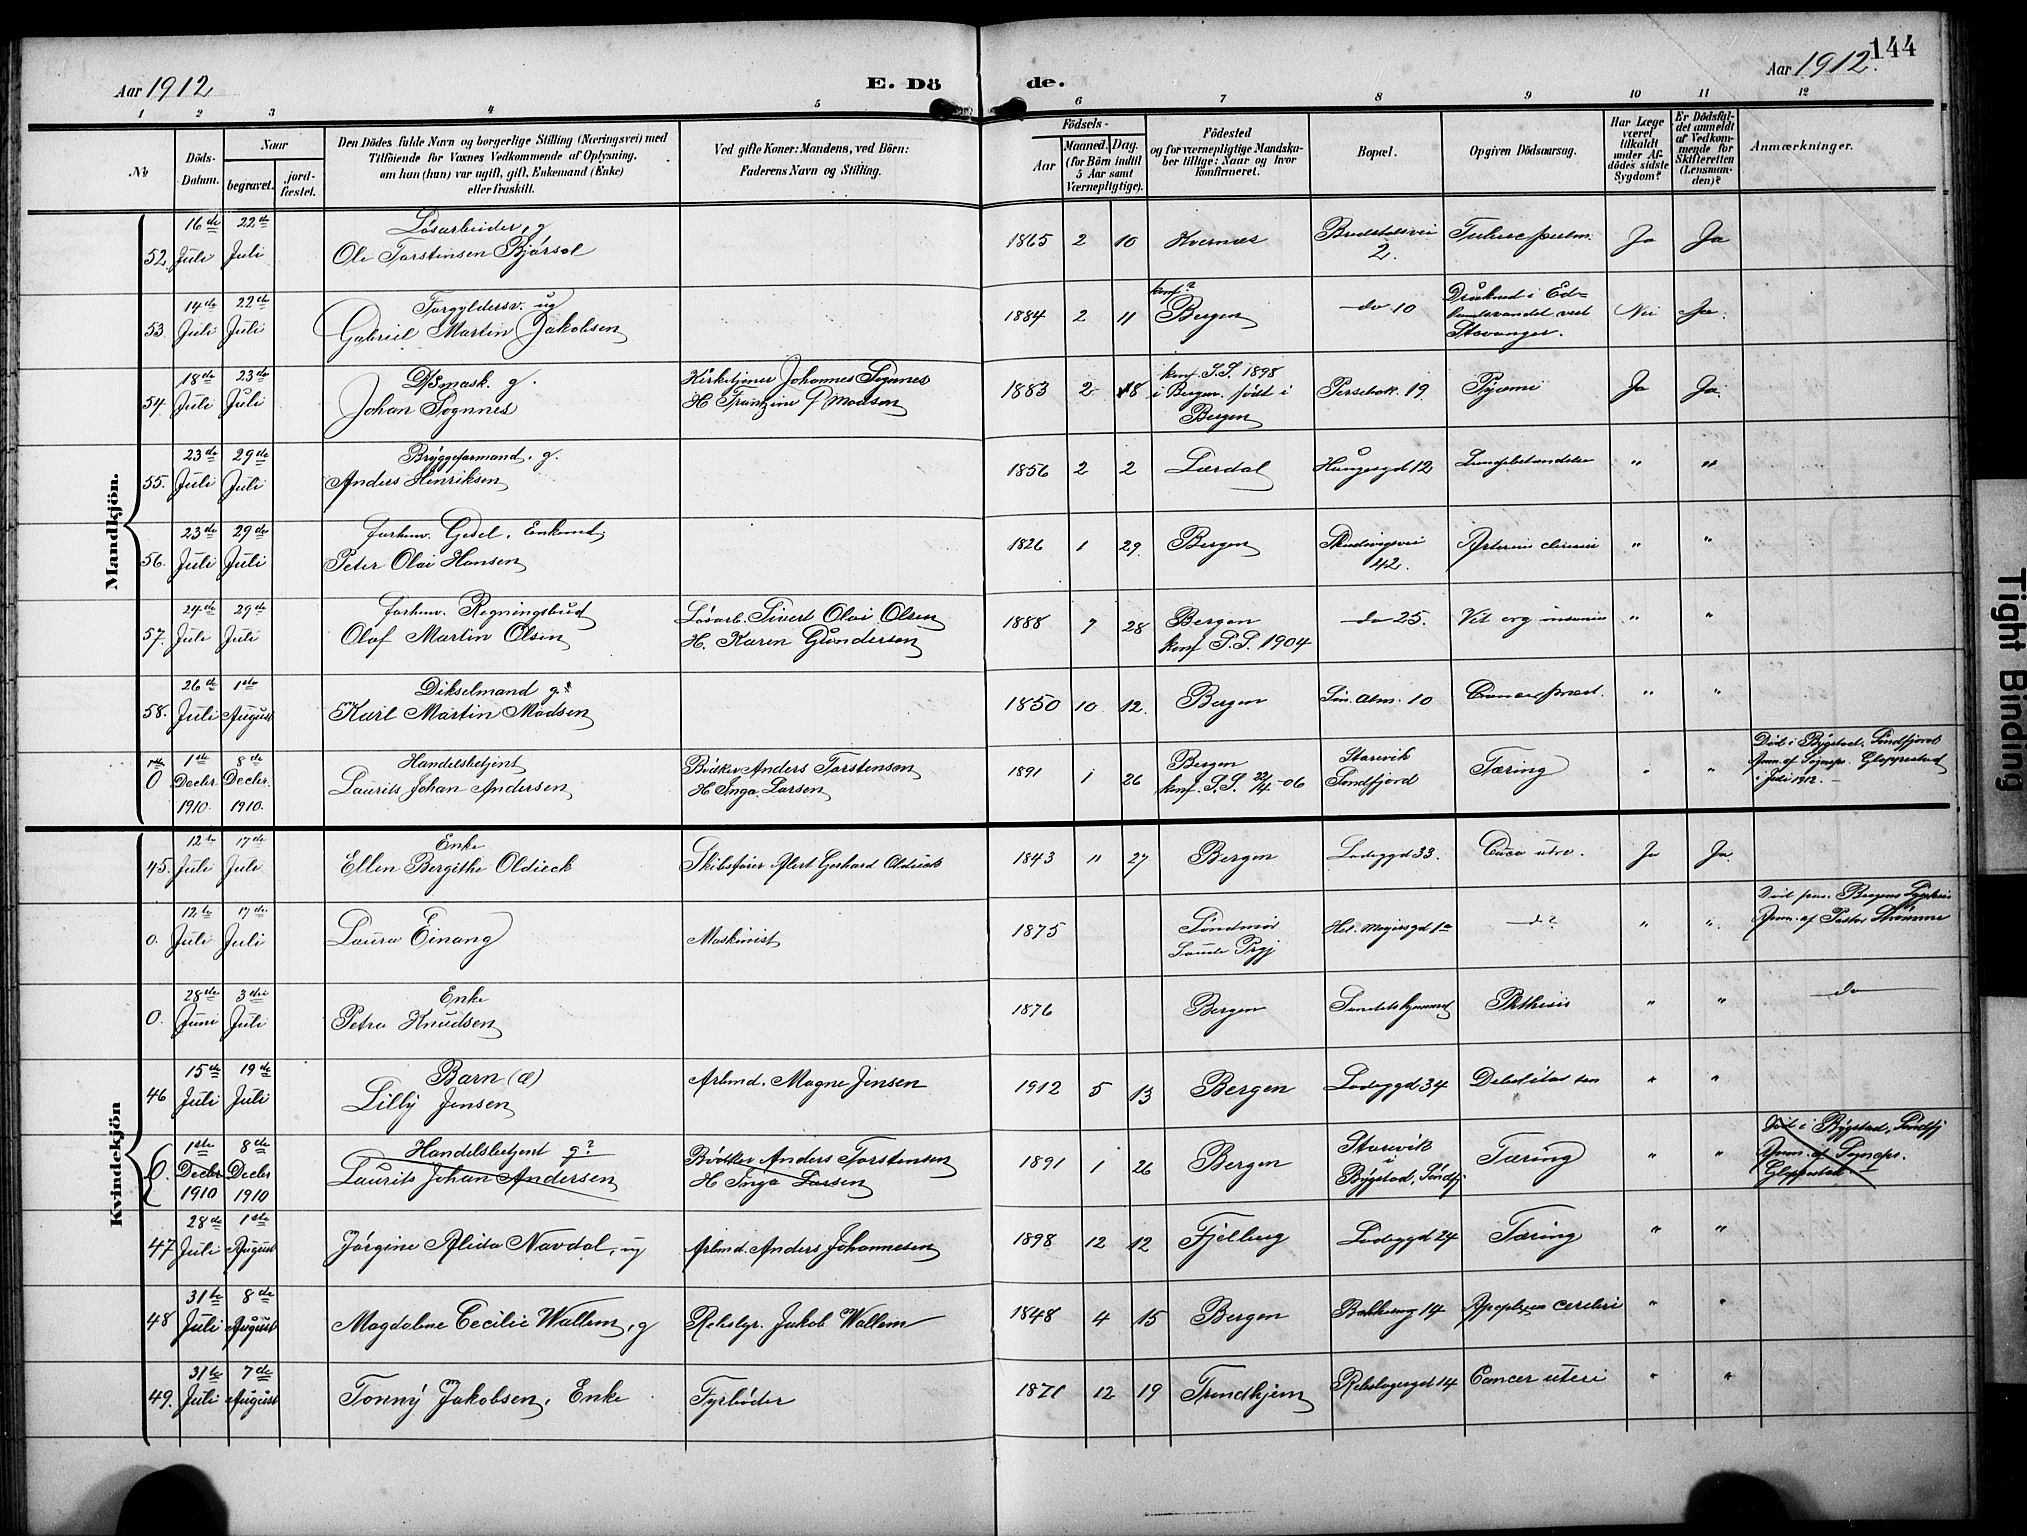 144
Aar 1912
E. Dö de.
Aar 1912.
1 2 3 4 5 6 7 8 9 10 11 12
No
Döds-Datum.
Naar
begravet.
jord-fæstet.
Den Dödes fulde Navn og borgerlige Stilling (Næringsvei) med
Tilföiende for Voxnes Vedkommende af Oplysning.
om han (hun) var ugift, gift, Enkemand (Enke)
eller fraskilt.
Ved gifte Koner: Mandens, ved Börn:
Faderens Navn og Stilling.
Födsels-
Aar
Maaned. Dag.
(for Börn indtil
5 Aar samt
Værnepligtige).
Födested
og for værnepligtige Mandska-
ber tillige: Naar og hvor
konfirmeret.
Bopæl.
Opgiven Dödsaarsag.
Har Læge
været
tilkaldt
under Af-
dödes sidste
Sygdom?
Er Dödsfal-
det anmeldt
af Vedkom-
mende for
Skifteretten
(Lensman-
den)?
Anmærkninger.
Mandkjön.
52. 16de Juli 22de Juli Løsarbeider, g
Ole Torstensen Bjørsol 1865 2 10 Hvernæs 2. Tuberc pulm. Ja Ja
53. 14de Juli 22de Juli Forgyldersv. ug
Gabriel Martin Jakobsen 1884 2 11 konf? Bergen do 10 Druknet i ved Stavanger. Nei Ja.
54. 18de Juli 23de Juli D/Smask. g.
Johan Sognnes Kirketjener Johannes Sognnes
H Frantzine f Madsen 1883 2 18 konf. S.S. 1898
i Bergen. født i
Bergen Persebak. 19. Pyæmi Ja Ja.
55. 23de Juli 29de Juli Bryggeformand. g.
Anders Henriksen 1856 2 2 Lærdal Haugesgd 12 Lungebetændelse " "
56. 23de Juli 29de Juli forhenv. Gesel. Enkemd.
Peter Olai Hansen 1826 1 29. Bergen Skudevigsvei 42. " "
57. 24de Juli 29de Juli forhenv. Regningsbud
Olaf Martin Olsen Løsarb. Sivert Olai Olsen
H. Karen Gundersen 1888 7 28 Bergen
konf S.S. 1904 do 25. Vit org. " "
58. 26de Juli 1ste August Dikselmand g.
Karl Martin Madsen 1850 10 12. Bergen Søn. Alm. 10 Cancer " "
0 1ste Decbr 1910. 8de Decbr. 1910. Handelsbetjent
Laurits Johan Andersen Bødker Anders Torstensen
H Inga Larsen 1891 1 26 Bergen
konf. S.S. 22/4 -06 Storevik
Søndfjord Tæring " " Død i Bygstad. Søndfjord
Anm. af Sognepr.
i Juli 1912. -
Kvindekjön
45. 12te Juli 17de Juli Enke
Ellen Bergithe Oldieck Skibsfører Alert Gerhard Oldieck 1843 " 27 Bergen Ladeggd 33. Ja Ja.
0. 12te Juli 17de Juli Laura Einang Maskinist 1875 Søndmør
Sande Prgj 1a d? " " Død paa Bergens Sygehus
Anm. af Pastor Strømme
0. 28de Juni 3die Juli Enke
Petra Knudsen 1876 Bergen Phthisis " " do
46 15de Juli 19de Juli Barn (æ)
Lilly Jensen Arbmd. Magne Jensen 1912 5 13 Bergen Ladeggd 34 Debilitas " "
0. 1ste Decbr 1910 8de Decbr 1910 Handelsbetjent g?
Laurits Johan Andersen Bødker Anders Torstensen
H Inga Larsen 1891 1 26 Bergen Storevik
i
Bygstad, Søndfj. Tæring " " Død i Bygstad, Søndfj
Anm. af Sognepr.
47 28de Juli 1ste August Jørgine Alida Navdal, ug Arbmd. Anders Johannesen 1898 12 12 Fjelberg Ladeggd 24 Tæring " "
48 31te Juli 8de August Magdalene Cecilie Wallem, g Rebslgr. Jakob Wallem 1848 4 15 Bergen 14 Apoplexia cerebri " "
49. 31te Juli 7de August Tonny Jakobsen, Enke Fyrbøder 1871 12 19 Trondhjem Rebslagergd 14 Cancer uteri " "
Tight Binding